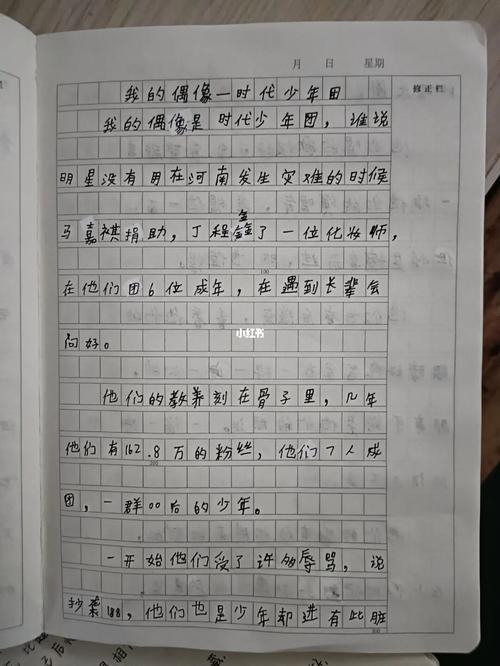 月 日 星期
修正栏
我的偶像一时代少年田
我的偶像是时代少年团，谁说
明星没有用在河南发生灾难的时候
马嘉祺捐助，丁程鑫了一位化妆师，
在他们团6位成年，在遇到长辈会
100
小红书
问好。
他们的教养刻在骨子里，几年
他们有162.8万的粉丝，他们7人成
200
团，一群00后的少年。
一开始他们受了许多辱骂，说
抄袭188，他们也是少年却进有此脏
300